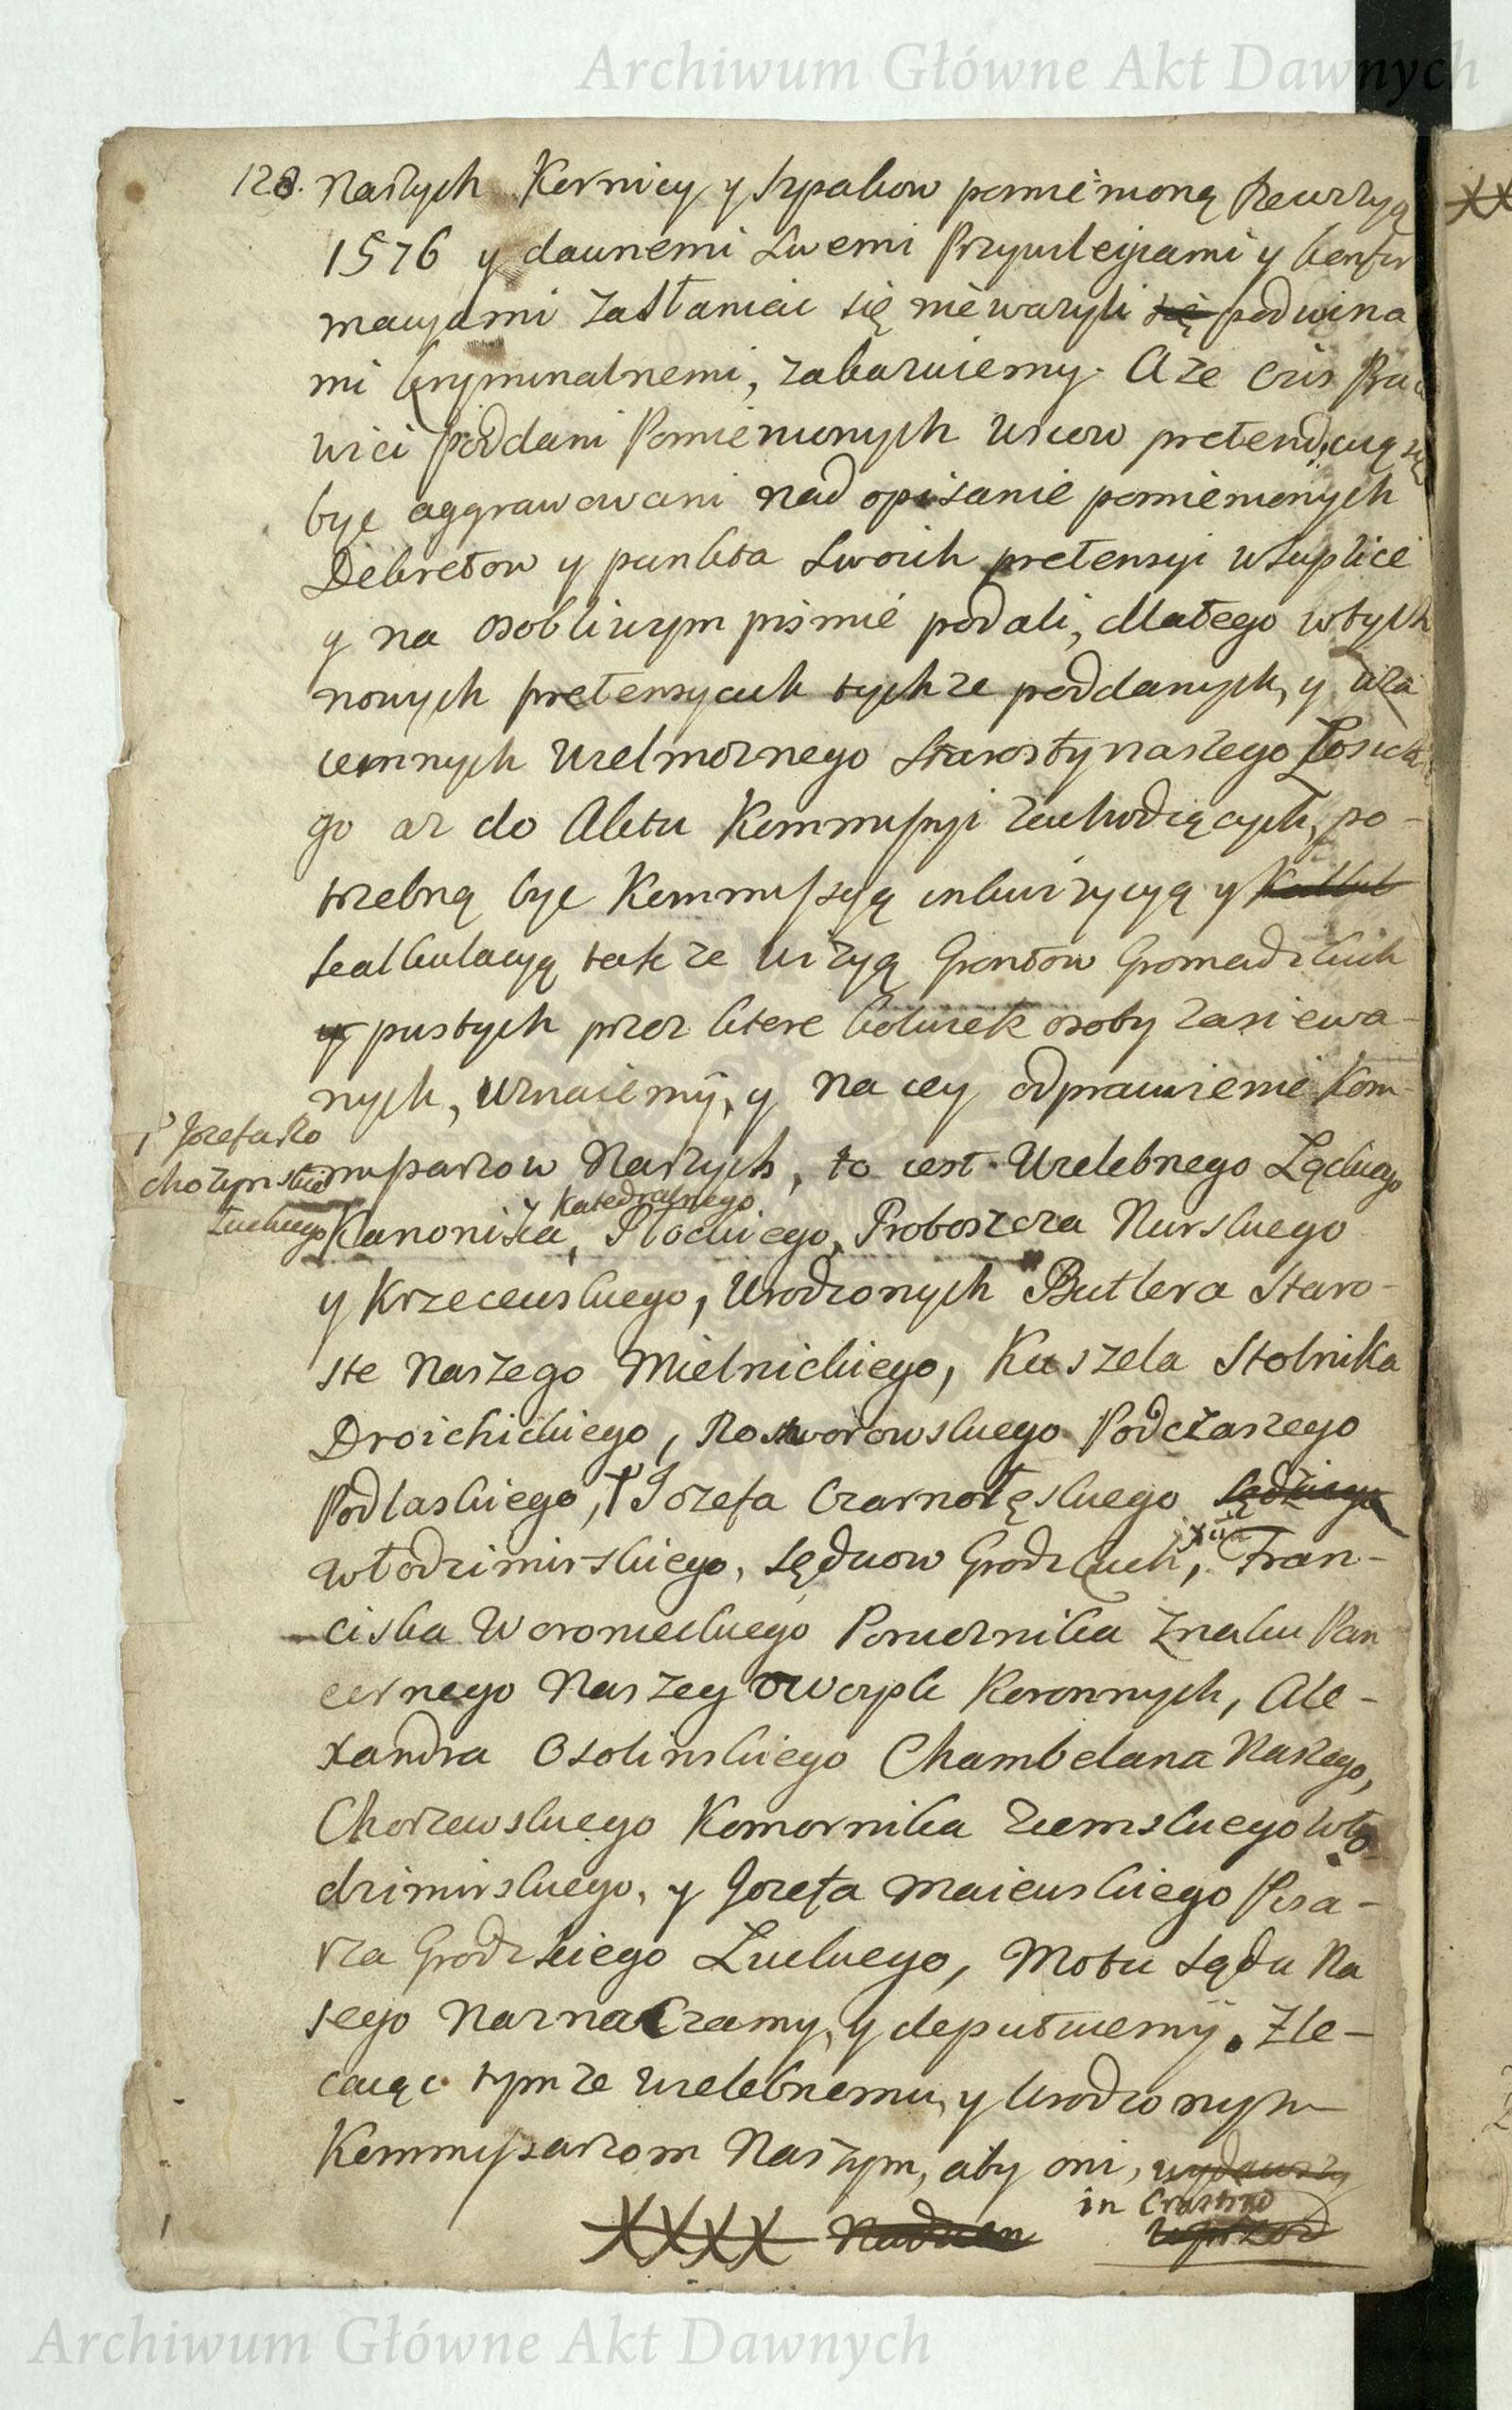 Archiwum Główne Akt Dawnych
128. Naszych Kornicy y Szpakow pomienioną Rewizyą
1576 y dawnemi Swemi Przywileiami y konfir
macyami zasłaniac się nie wazyli się pod wina
mi kryminalnemi, zakazuiemy. A ze ciż Pra
wici poddani Pomienionych wsiow pretenduią się
byc aggrawowani nad opisanie pomienionych
Dekretow y punkta Swoich pretensyi w Suplice
y na osobliwym pismie podali, dlatego w tych
nowych pretensyach tychze poddanych, y wza
iemnych Wielmoznego Starosty naszego Łosick
go az do Aktu Kommissyi zachodzących, po-
trzebną byc Kommissyą inkwizycyą y
kalkulacyą takze wizyą Gruntow Gromadzkich
y pustych przez ktore kolwiek osoby zasiewa-
nych, uznaiemy, y na iey odprawienie Kom-
Jozefa Ro
chozynskie
Łuckiego
missarzow Naszych, to iest Wielebnego Łąckiego
Katedralnego
Kanonika, Płockiego, Proboszcza Nurskiego
y Krzeceuskiego, Urodzonych Butlera Staro-
ste Naszego Mielnickiego, Kuszela Stolnika
Droichickiego, Rostworowskiego Podczaszego
Podlaskiego, Jozefa Czarnołęskiego Sędziego
Włodzimirskiego, Sędziow Grodzkich, Fran-
ciska Woronieckiego Porucznika Znaku Pan
cernego Naszey w woysk Koronnych, Ale-
xandra Osolinskiego Chambelana Naszego,
Chorzewskiego Komornika Ziemskiego Wło-
dzimirskiego, y Jozefa Maiewskiego Pisa-
rza Grodzkiego Łuckiego, Motu Sądu Na
szego Naznaczamy, y deputuiemy. Zle-
caiąc tymze Wielebnemu, y Urodzonym
Kommissarzom Naszym, aby oni, wydawszy
in Crastino
XXXX
Archiwum Główne Akt Dawnych